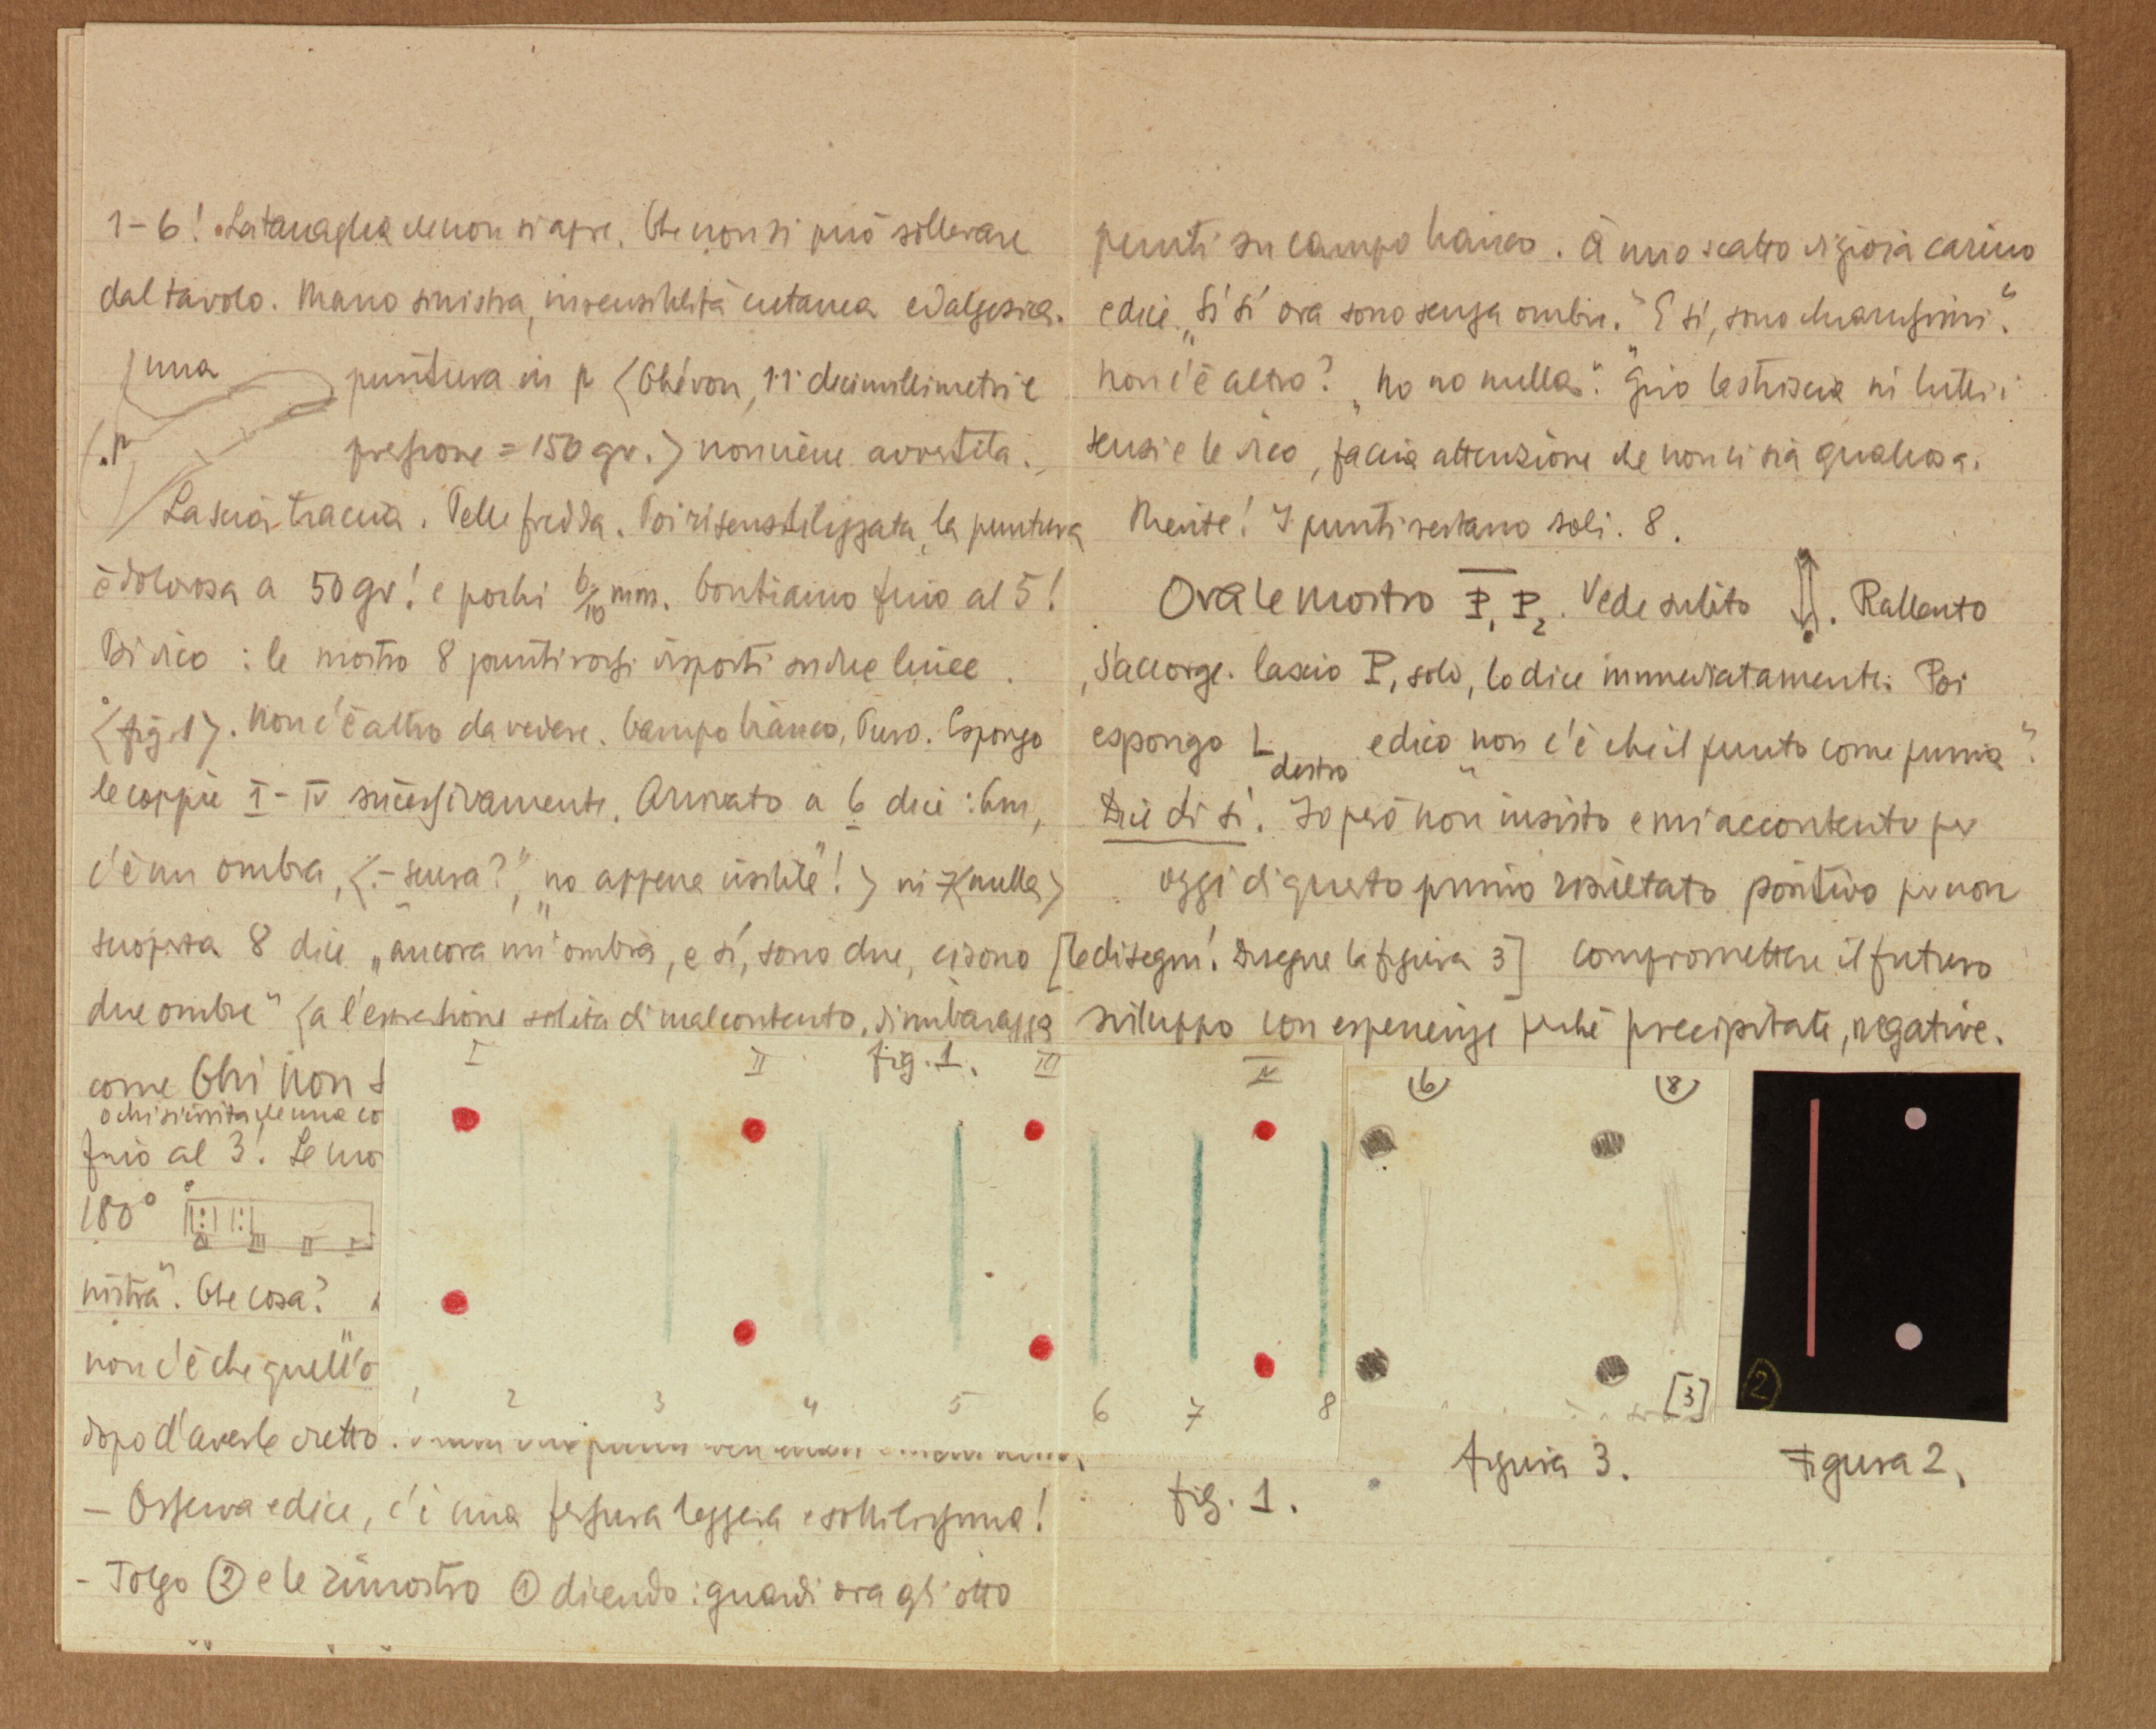 1–6! La tanaglia che non si apre. Che non si può sollevare
dal tavolo. Mano sinistra, insensibilità cutanea ed algesica.
una
puntura in p ⟨Chévon, 11 decimillimetri e
.p
pressione = 150 gr.⟩ non viene avvertita.
Lascia traccia. Pelle fredda. Poi risensibilizzata, la puntura
è dolorosa a 50 gr! e pochi 6/10 mm. Contiamo fino al 5!
Si dico : le mostro 8 punti rossi disposti su due linee.
⟨fig. 1⟩. Non c'è altro da vedere. Campo bianco, Puro. Espongo
le coppie I – IV successivamente. Arrivato a 6 dice : hm,
c'è un ombra, ⟨– scura?", "no appena visibile"!⟩ in 7 ⟨nulla⟩
scoperta 8 dice „ancora un'ombra, e sí, sono due, ci sono
due ombre" ⟨a l'espressione solita di malcontento, d'imbarazzo
come Chi non
o chi si irrita che una co
fino al 3! Le mo
180°
IV III II I
nistra". Che cosa?
non c'è che quell'o
dopo d'averle detto.
– Osserva e dice, c'è una fessura leggera e sottilissima!
– Tolgo ② e le rimostro ① dicendo : guardi ora gli otto
punti su campo bianco. A uno scatto di gioia carino
e dice „Sí sí ora sono senza ombre." "E sí, sono chiarissimi".
Non c'è altro? „No no nulla." Giro la striscia in tutti i
sensi e le dico, faccia attenzione che non ci sia qualcosa.
Niente! I punti restano soli. 8.
Ora le mostro P₁ P₂. Vede subito . Rallento
s'accorge. Lascio P, solo, lo dice immediatamente. Poi
espongo L destro e dico "non c'è che il punto come prima".
Dice di sí. Io però non insisto e mi accontento per
oggi di questo primo risultato positivo per non
[le disegni! Disegna la figura 3] compromettere il futuro
sviluppo con esperienze perché precipitate, negative.
I II fig. 1. III IV
1 2 3 4 5 6 7 8
fig. 1.
(6) (8)
[3]
figura 3.
2
Figura 2.